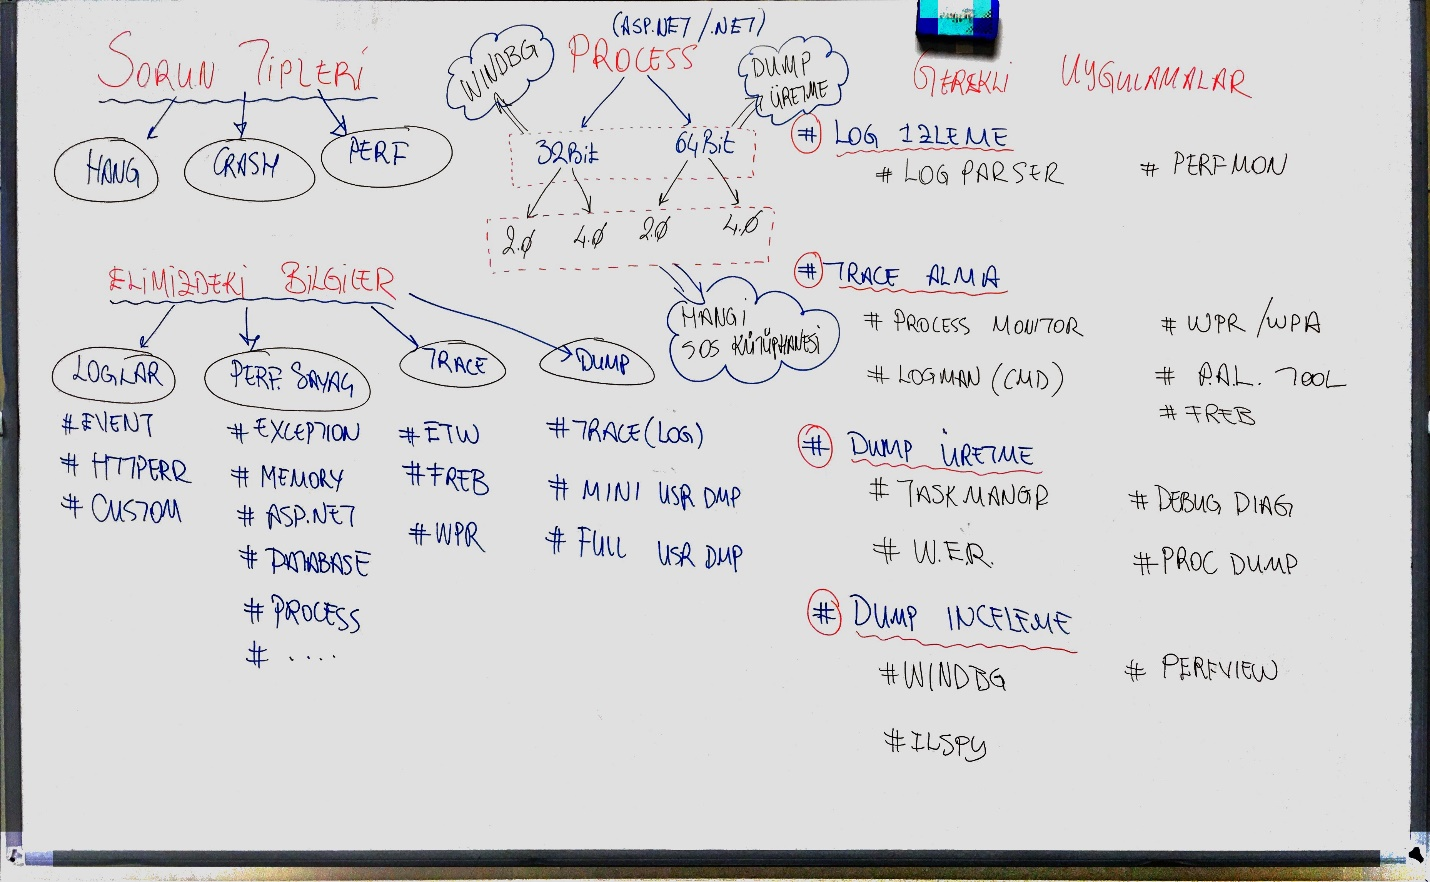 SORUN TİPLERİ
HANG
CRASH
PERF
(ASP.NET/.NET)
PROCESS
WINDBG
DUMP
ÜRETME
32Bit
64Bit
2.0
4.0
2.0
4.0
HANGİ
SOS KÜTÜPHANESİ
ELİMİZDEKİ BİLGİLER
LOGLAR
# EVENT
# HTTPERR
# CUSTOM
PERF. SAYAÇ
# EXCEPTION
# MEMORY
# ASP.NET
# DATABASE
# PROCESS
# ....
TRACE
# ETW
# FREB
# WPR
DUMP
# TRACE(LOG)
# MINI USR DMP
# FULL USR DMP
GEREKLİ UYGULAMALAR
# LOG IZLEME
# LOG PARSER
# PERFMON
# TRACE ALMA
# PROCESS MONITOR
# WPR/WPA
# LOGMAN (CMD)
# P.A.L. TOOL
# FREB
# DUMP ÜRETME
# TASKMANGR
# DEBUG DIAG
# W.E.R.
# PROC DUMP
# DUMP INCELEME
# WINDBG
# PERFVIEW
# ILSPY